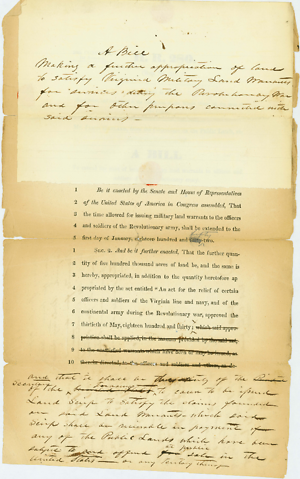 A Bill
Making a further appropriation of land
to satisfy Virginia Military Land Warrants
for services during the Revolutionary War
and for other purposes connected with
said
1 Be it enacted by the Senate and House of Representatives
2 of the United States of America in Congress assembled, That
3 the time allowed for issuing military land warrants to the officers
4 and soldiers of the Revolutionary army, shall be extended to the
5 first day of January, eighteen hundred and two.
1 Sec. 2. And be it further enacted, That the further quan-
2 tity of five hundred thousand acres of land be, and the same is
3 hereby, appropriated, in addition to the quantity heretofore ap
4 propriated by the act entitled "An act for the relief of certain
5 officers and soldiers of the Virginia line and navy, and of the
6 continental army during the Revolutionary war, approved the
7 thirtieth of May, eighteen hundred and thirty; which said appro-
8 priation shall be applied, in the manner provided by the said act,
9 to the unsatisfied warrants which have been or may be
10
and that it shall be the duty of the
Secretary of the to cause to be issued
Land Scrip to satisfy the claims founded
on said Land Warrants, which said
Scrip shall be receivable in payment of
any of the Public Lands which have been
subject to sale in the
United States or any